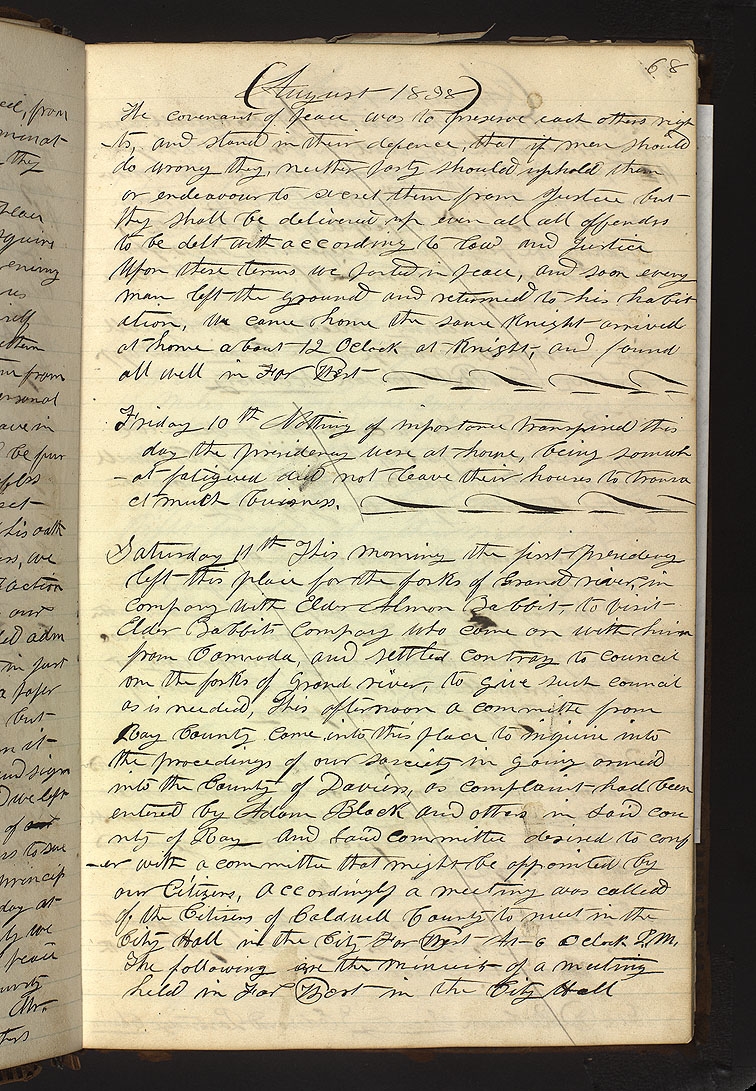 68
(August 1838)
The covenant of peace was to preserve each others righ
-ts, and stand in their defence, that if men should
do wrong they, neither party should uphold them
or endeavour to screet them from Justice but
they shall be delivered up even all all offenders
to be delt with according to law and Justice
Upon these terms we parted in peace, and soon every
man left the ground and returned to his habit
ation, We came home the same Knight arrived
at home about 12 Oclock at Knight, and found
all well in Far West
Friday 10th Nothing of importance transpired this
day the presidency were at home, being somewh
-at fatigued did not leave their houses to transa
ct much buisness.
Saturday 11th This morning the first Presidency
left this place for the forks of Grand river, in
company with Elder Almon Babbit, to visit
Elder Babbits company who came on with him
from Cannada, and settled contray to council
on the forks of Grand river, to give such council
as is needed, This afternoon a committe from
Ray County came, into this place to inquire into
the procedings of our sosciety in going armed
into the County of Daviess, as complaint had been
entered by Adam Black and others in said cou
nty of Ray And said committee desired to conf
-er with a committe that might be appointed by
our Citizens, Accordingly a meeting was called
of, the Citizens of Caldwell County to meet in the
City Hall in the City Far West At 6 Oclock P.M.
The following are the minuits of a meeting
held in Far West in the City Hall
ced, from
minat
they
squire
evening
us
from
ersonal
ave in
be pur
set
his oath
we
action
our
led adm
in part
a paper
but
n it
and sign
D we left
of
princip
day at
ly we
peace
Mr.